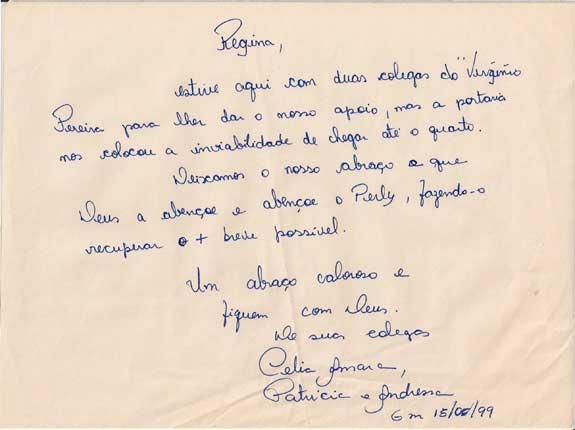 Regina,
estive aqui com duas colegas do "Virgínio
Pereira para lher dar o nosso apoio, mas a portaria
nos colocou a inviabilidade de chegar até o quarto.
Deixamos o nosso abraço e que
Deus a abençoe e abençoe o Perly, fazendo-o
recuperar o + breve possível.
Um abraço caloroso e
fiquem com Deus.
De suas colegas
Celia Amara,
Patrícia e Andressa
Em 15/ /99